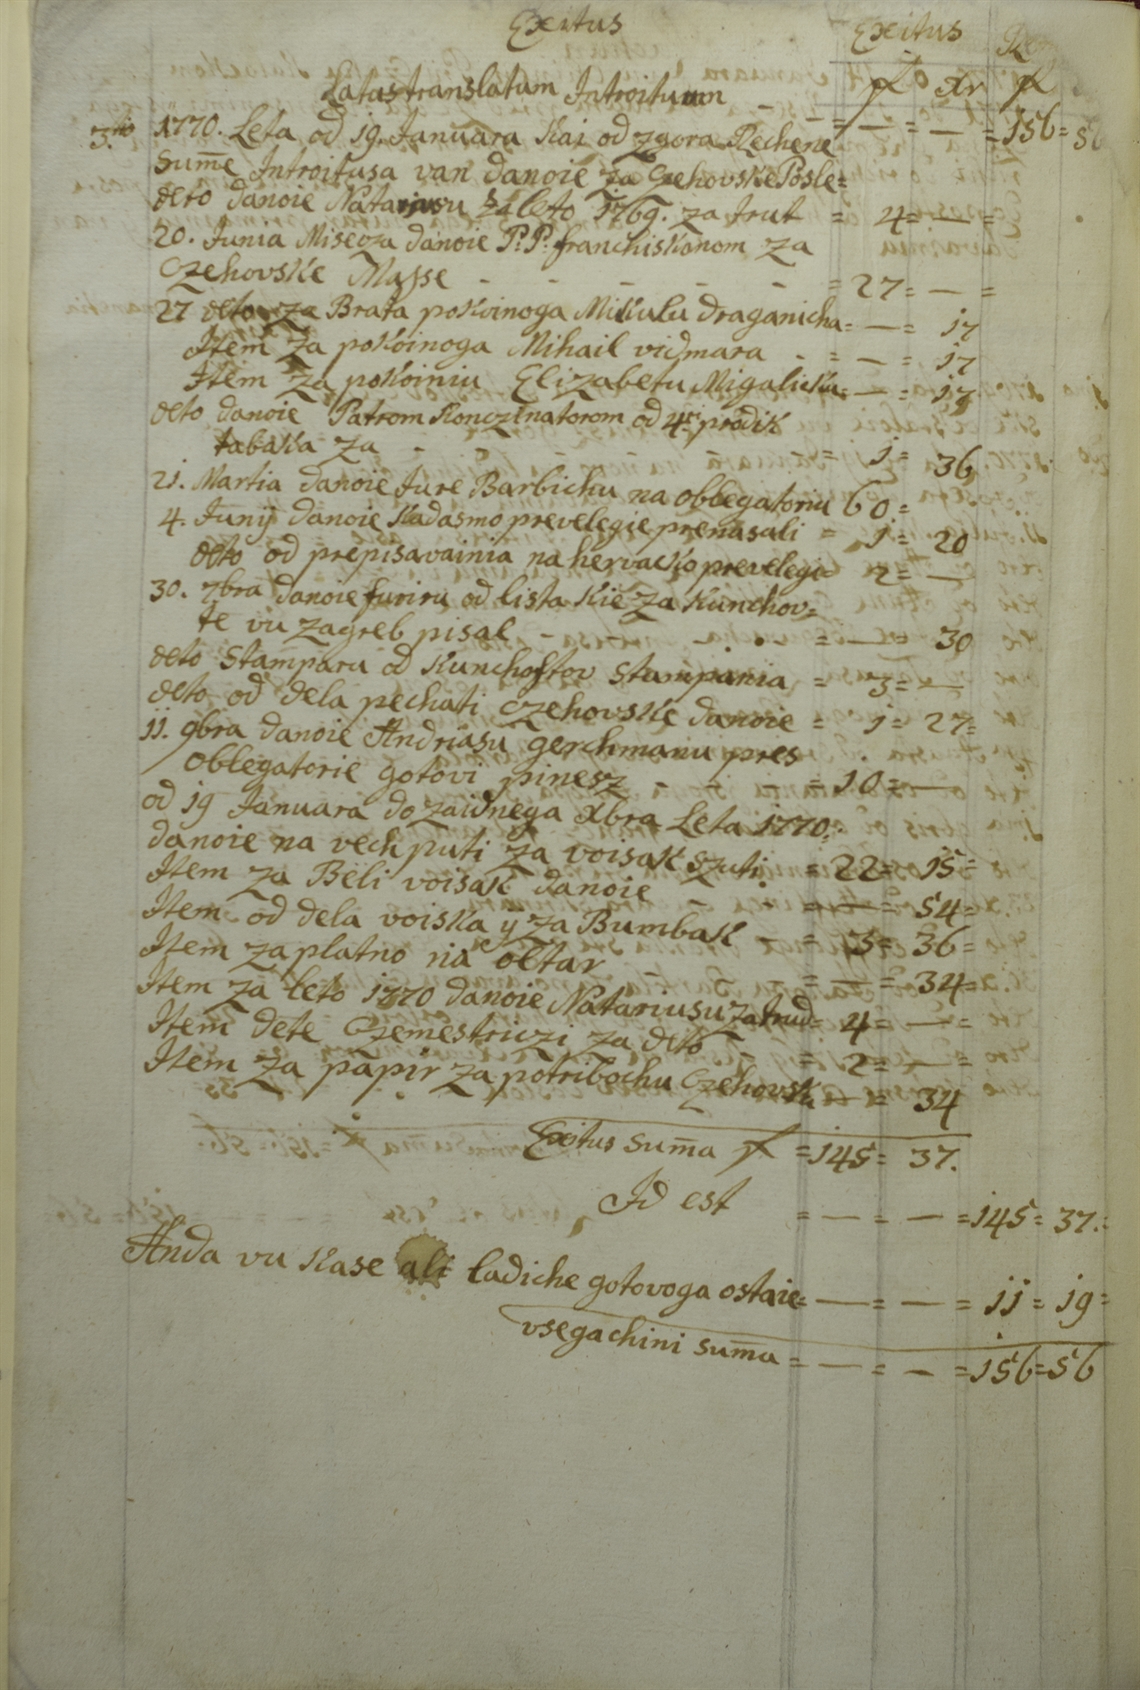 Exitus Exitus
Latus translatum Introituum f xr f
3tio 1770. Leta od 19. Januara Kai od zgora Rechene = — = — = 156 = 56
Sume Introitusa van danoie za Czehovske Posle =
deto danoie Natariusu za leto 1769. za trut = 4 = — =
20. Junia Misecza danoie P. P. franchiskanom za
Czehovske Masse - - - - - = 27 = — =
27 deto za Brata pokoinoga Mikulu draganicha = — = 17
Item za pokoinoga Mihail vidmara - = — = 17
Item za pokoiniu Elizabetu Migalichu = — = 17
deto danoie Patrom od 4ri
tabaka za - = 1 = 36
21. Martia danoie Jure Barbichu na obbegatoriu 60 =
4. Junij danoie Kadasmo prevelegie prenasali = 1 = 20
deto od prepisavainia na hervacko prevelegi = 2 = —
30. 7bra danoie furiru od lista kie za Kunchov =
te vu zagreb pisal - = — = 30
deto Stamparu od Kunchoftov Stampania = 3 = —
deto od dela pechati Czehovske danoie = 1 = 27 =
11. 9bra danoie Andriasu gerchmanu pres
oblegatorie gotovi pinesz - = 10 = —
od 19 Januara do zaidnega xbra Leta 1770 =
danoie na vech puti za voisak szuti = 22 = 15 =
Item za Beli voisak danoie = — = 54 =
Item od dela voiska ÿ za Bumbak = 3 = 36 =
Item zaplatno na oltar = — = 34 =
Item za leto 1770 danoie Natariusu za trud = 4 = — =
Item dete Czemestriczi za deto - = 2 = — =
Item za papir za potribochu Czehovsku = — = 34
Exitus Suma f = 145 = 37.
Id est = — = — = 145 = 37. =
Anda vu Kase ali ladiche gotovoga ostaie = — = — = 11 = 19 =
vsegachini suma = — = — = 156 = 56